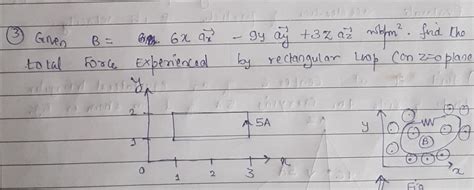 ③ Given B = 6x ax - 9y ay + 3z az wb/m². find the
total force experienced by rectangular loop (on z=0 plane
y
2
5A
1
0 1 2 3 x
y
B
x
Fig